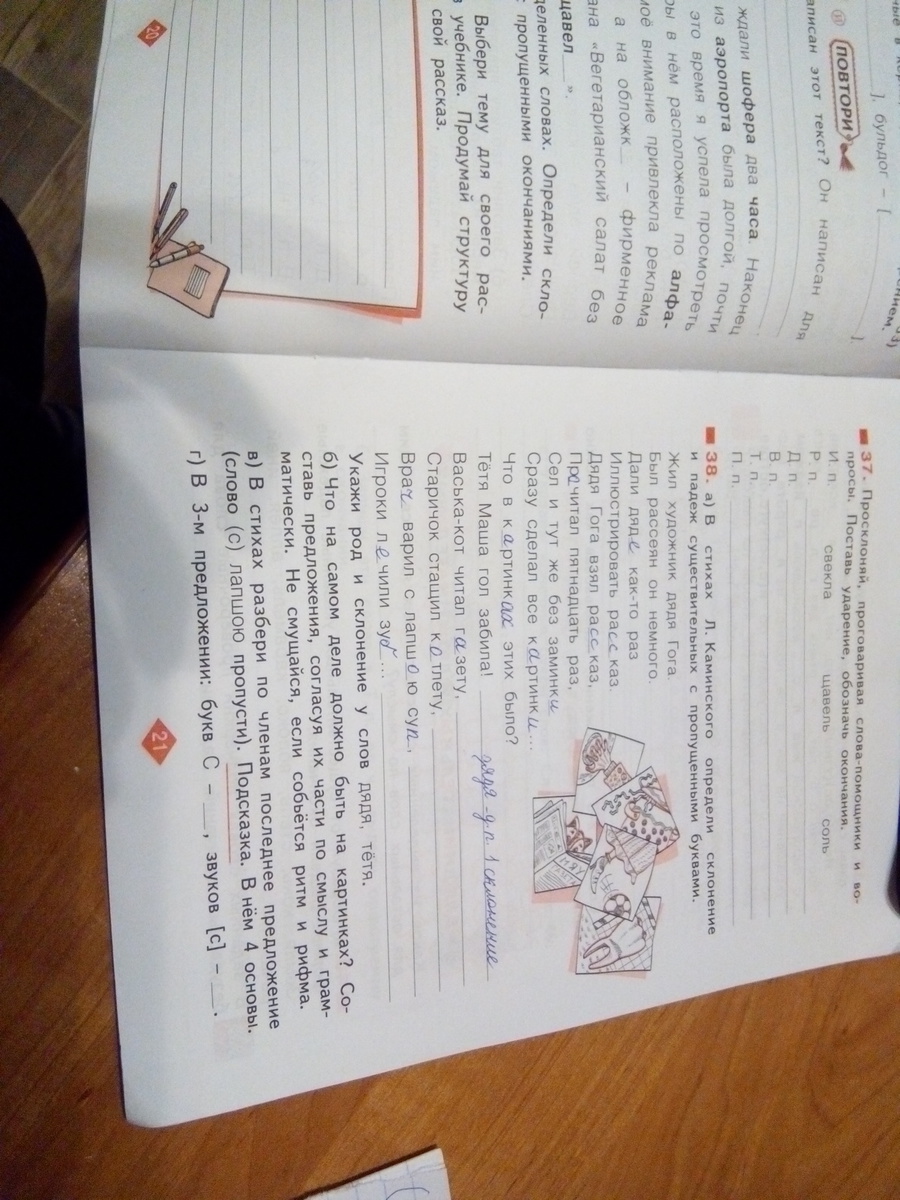 ]. бульдог – [
]
11 ПОВТОРИ
аписан этот текст? Он написан для
ждали шофера два часа. Наконец
из аэропорта была долгой, почти
это время я успела просмотреть
ры в нём расположены по алфа-
моё внимание привлекла реклама
а на обложк__ – фирменное
ана «Вегетарианский салат без
щавел__».
деленных словах. Определи скло-
с пропущенными окончаниями.
Выбери тему для своего рас-
в учебнике. Продумай структуру
свой рассказ.
20
37. Просклоняй, проговаривая слова-помощники и во-
просы. Поставь ударение, обозначь окончания.
И. п. свекла щавель соль
Р. п.
Д. п.
В. п.
Т. п.
П. п.
38. а) В стихах Л. Каминского определи склонение
и падеж существительных с пропущенными буквами.
Жил художник дядя Гога.
Был рассеян он немного.
Дали дяде как-то раз
Иллюстрировать рассказ.
Дядя Гога взял рассказ,
Прочитал пятнадцать раз,
Сел и тут же без заминки
Сразу сделал все картинки...
Что в картинках этих было?
Тётя Маша гол забила! дядя – д.п. 1 склонение
Васька-кот читал газету,
Старичок стащил котлету,
Врач варил с лапшою суп,
Игроки лечили зуб...
Укажи род и склонение у слов дядя, тётя.
б) Что на самом деле должно быть на картинках? Со-
ставь предложения, согласуя их части по смыслу и грам-
матически. Не смущайся, если собьётся ритм и рифма.
в) В стихах разбери по членам последнее предложение
(слово (с) лапшою пропусти). Подсказка. В нём 4 основы.
г) В 3-м предложении: букв С – __, звуков [с] – __.
21